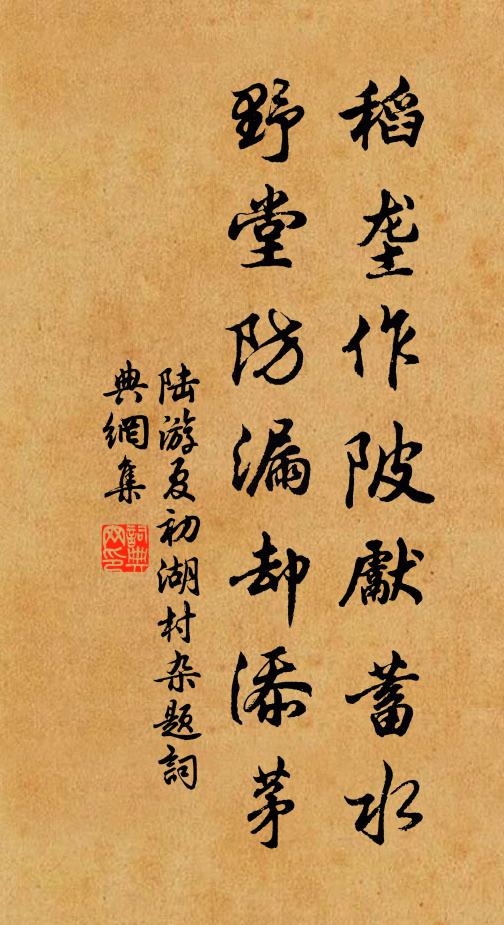 稻垄作陂獻蓄水
野堂防漏却添茅
陆游夏初湖村杂题詞
典網集
詞典
网印